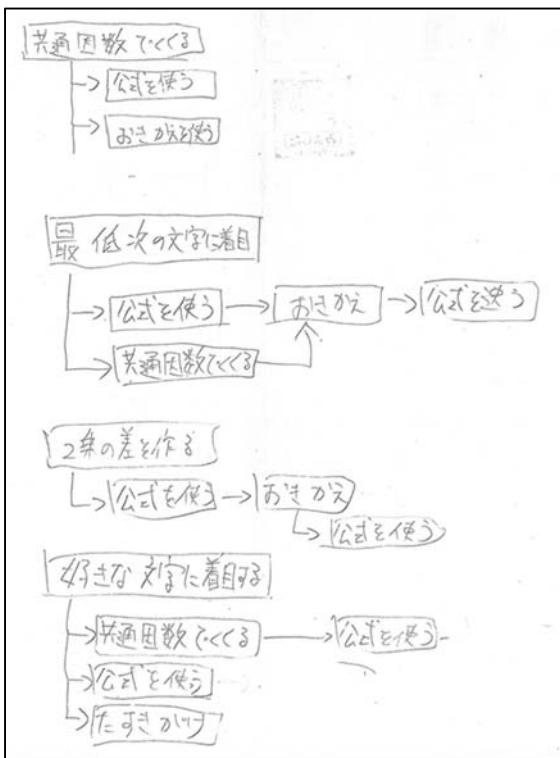 共通因数でくくる
→ 公式を使う
→ おきかえを使う
最低次の文字に着目
→ 公式を使う → おきかえ → 公式を使う
→ 共通因数でくくる
2乗の差を作る
→ 公式を使う → おきかえ
→ 公式を使う
好きな文字に着目する
→ 共通因数でくくる → 公式を使う
→ 公式を使う
→ たすきがけ